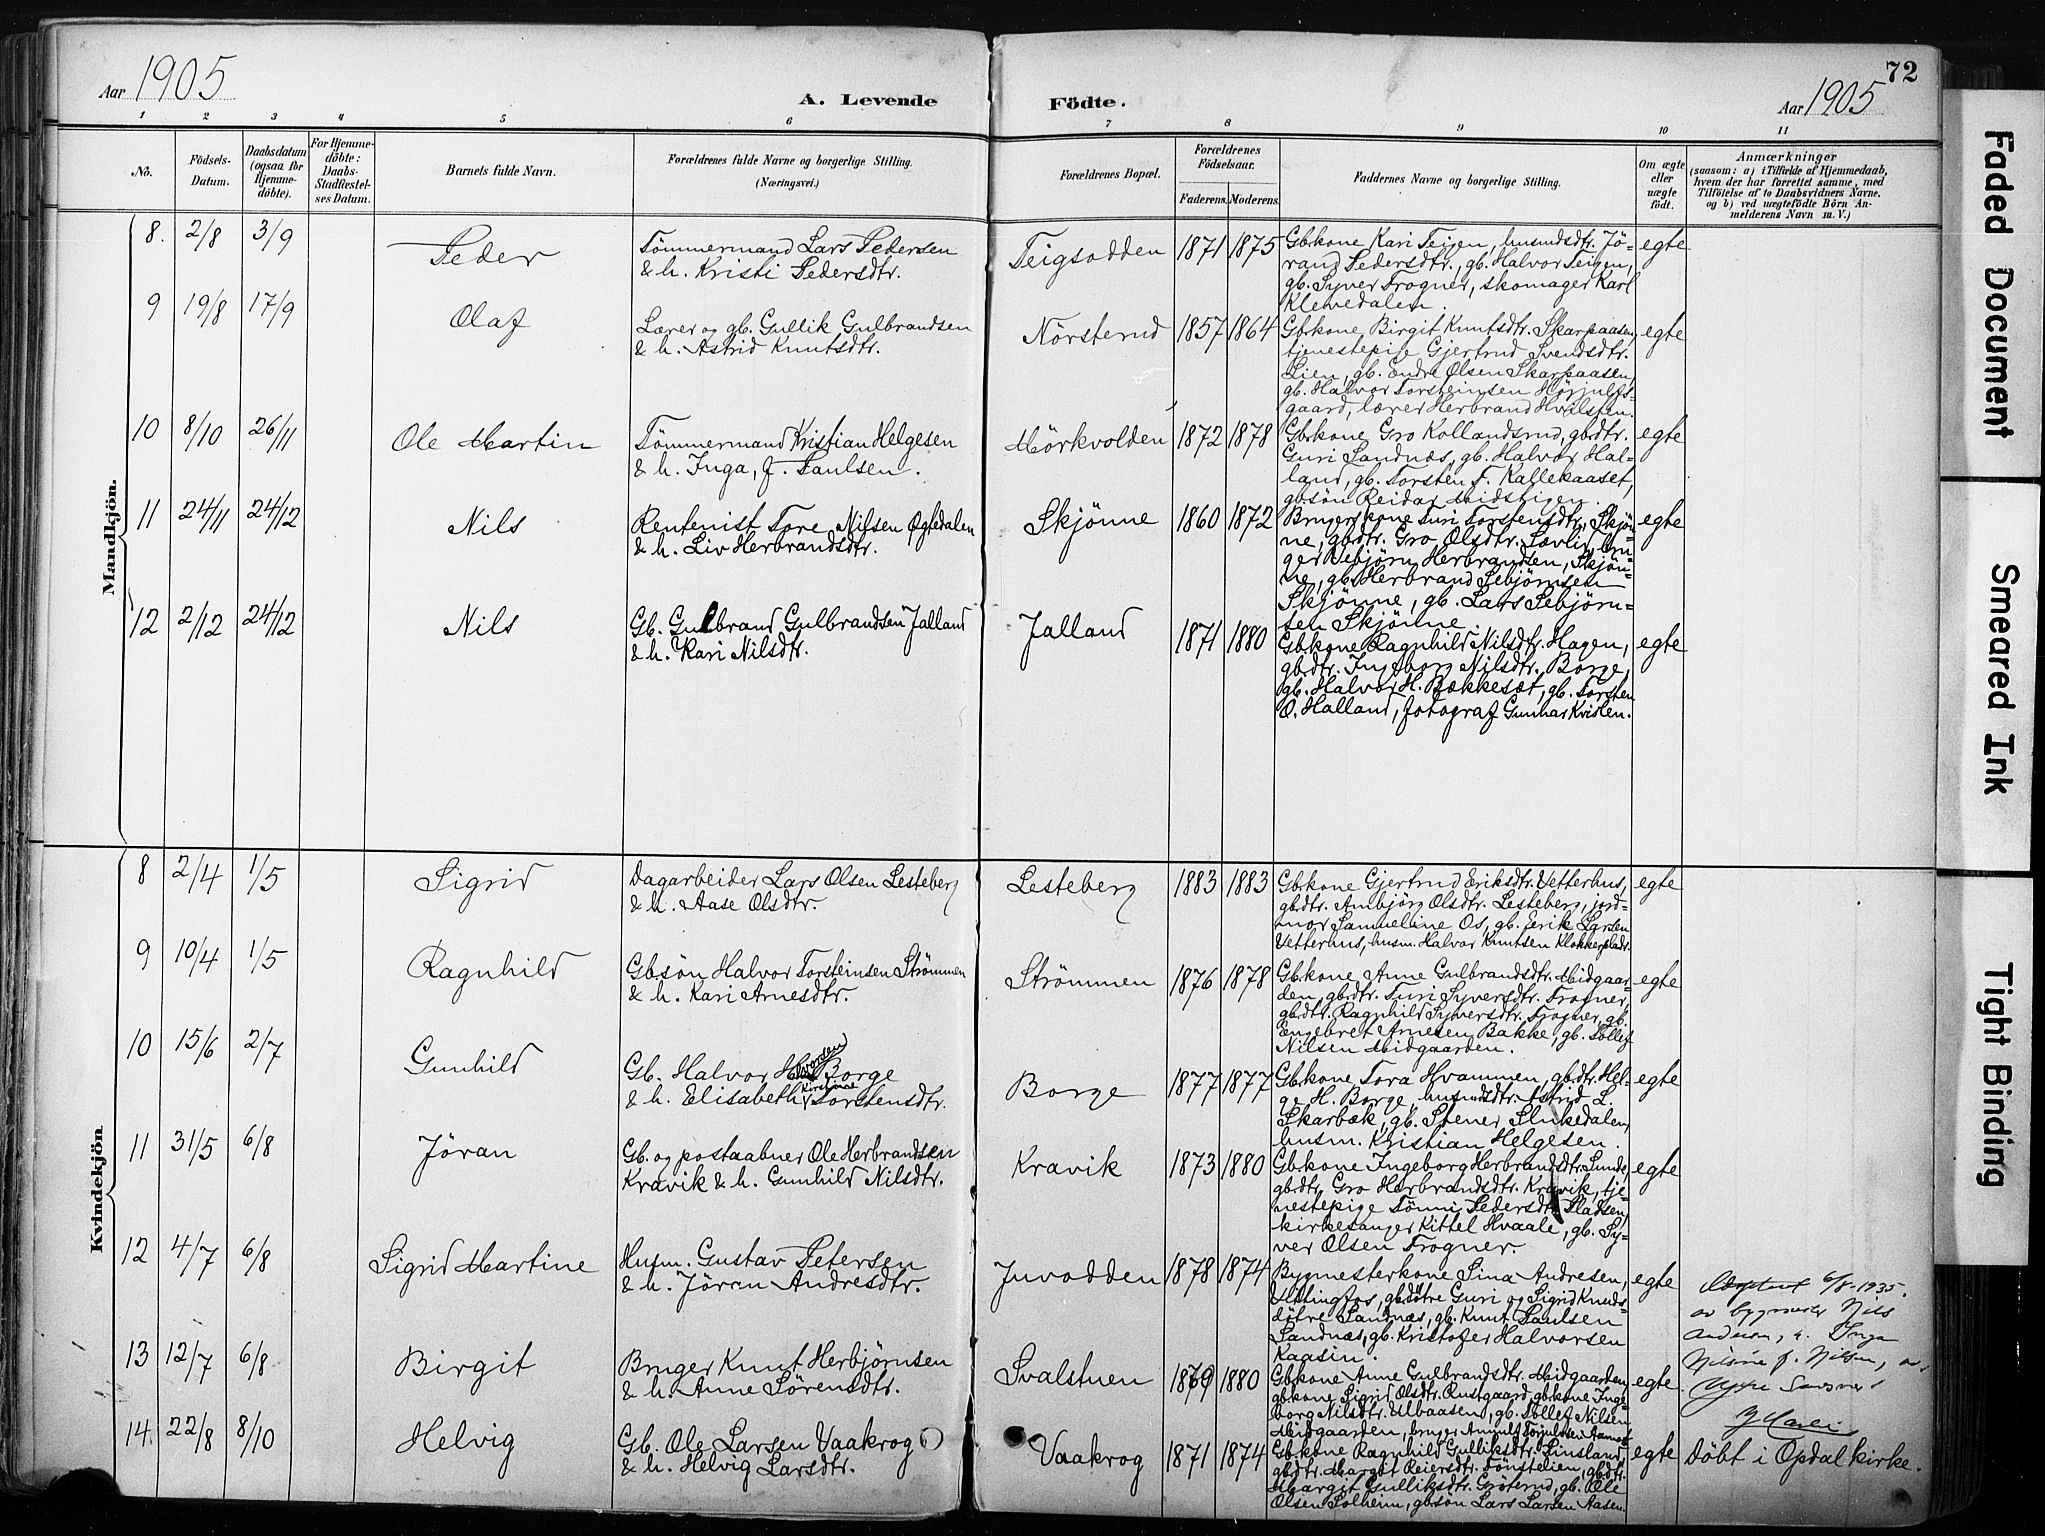 72
Aar 1905
A. Levende
Födte.
Aar 1905
1 2 3 4 5 6 7 8 9 10 11
No.
Födsels-
Datum.
Daabsdatum
(ogsaa for
Hjemme-
döbte).
For Hjemme-
döbte:
Daabs-
Stadfæstel-
ses Datum.
Barnets fulde Navn.
Forældrenes fulde Navne og borgerlige Stilling.
(Næringsvei.)
Forældrenes Bopæl.
Forældrenes
Födselsaar.
Faderens. Moderens.
Faddernes Navne og borgerlige Stilling.
Om ægte
eller
uægte
födt.
Anmærkninger
(saasom: a) i Tilfælde af Hjemmedaab,
hvem der har forrettet samme, med
Tilföielse af to Daabsvidners Navne.
og b) ved uægtefödte Börn An-
melderens Navn m. V.)
Mandkjön.
8. 2/8 3/9 Peder
Tömmermand Lars Pedersen
& h. Kristi Pedersdtr.
Teigsodden 1871 1875
Gbkone Kari Teigen, husmdsdtr. Jö-
rand Pedersdtr., gb. Halvor Teigen,
gb. Syver Frogner, skomager Karl
Klevedalen.
egte
9 19/8 17/9 Olaf
Lærer og gb. Gullik Gulbrandsen
& h. Astrid Knutsdtr.
Nörsterud 1857 1864
Gbkone Birgit Knutsdtr. Skarpaasen,
tjenestepige Gjertrud Svendsdtr.
Lien, gb. Endre Olsen Skarpaasen,
gb. Halvor Torsteinsen Hörjulfs-
gaard, lærer Herbrand Hvalsten.
egte
10 8/10 26/11 Ole Martin
Tömmermand Kristian Helgesen
& h. Inga, f. Paulsen.
Mörkvolden 1872 1878
Gbkone Gro Kollandsrud, gbdtr.
Guri Sandnæs, gb. Halvor Hal-
land, gb. Torsten T. Kallekaaset,
gbsön Reidar Midstigen.
egte
11 24/11 24/12 Nils
Rentenist Tore Nilsen Ögledalen
& h. Liv Herbrandsdtr.
Skjönne 1860 1872
Brugerskone Turi Torstensdtr. Skjön-
ne, gbdtr. Gro Olsdtr. Sævli, bru-
ger Sebjörn Herbrandsen, Skjön-
ne, gb. Herbrand Sebjörnsen
Skjönne, gb. Lars Sebjörn-
sen Skjönne.
egte
12 2/12 24/12 Nils
Gb. Gulbrand Gulbrandsen Jalland
& h. Kari Nilsdtr.
Jalland 1871 1880
Gbkone Ragnhild Nilsdtr. Hagen,
gbdtr. Ingeborg Nilsdtr. Borge,
gb. Halvor H. Bækkesæt, gb. Torsten
O. Halland, fotograf Gunnar Kvislen.
egte
Kvindekjön
8 2/4 1/5 Sigrid
Dagarbeider Lars Olsen Lesteberg
& h. Aase Olsdtr.
Lesteberg 1883 1883
Gbkone Gjertrud Eriksdtr. Vetterhus,
gbdtr. Ambjörg Olsdtr. Lesteberg, jord-
mor Samueline Os, gb. Eerik Larsen
Vetterhus, husm. Halvor Knutsen Klokkerplads.
egte
9 10/4 1/5 Ragnhild
Gbsön Halvor Torsteinsen Strömmen
& h. Kari Arnesdtr.
Strömmen 1876 1878
Gbkone Anne Gulbrandsdtr. Midgaar-
den, gbdtr. Turi Syversdtr. Frogner,
gbdtr. Ragnhild Syversdtr. Frogner, gb.
Engebret Arnesen Bakke, gb. Tollef
Nilsen Midgaarden.
egte
10 15/6 2/7 Gunhild
Gb. Halvor Borge
& h. Elisabeth Kirstine Torstensdtr.
Borge 1877 1877
Gbkone Tora Hvammen, gbdtr. Hel-
ge H. Borge, husmdsdtr. Astrid L.
Skarbæk, gb. Stener Slukedalen,
husm. Kristian Helgesen.
egte
11 31/5 6/8 Jöran
Gb. og postaabner Ole Herbrandsen
Kravik & h. Gunhild Nilsdtr.
Kravik 1873 1880
Gbkone Ingeborg Herbrandsdtr. Sunde,
gbdtr. Gro Herbrandsdtr. Kravik, tje-
nestepige Tönni Pedersdtr. Pladsen,
kirkesanger Kittel Hvaale, gb. Sy-
ver Olsen Frogner.
egte
12 4/7 6/8 Sigrid Martine
Husm. Gustav Petersen
& h. Jöran Andresdtr.
Juvodden 1878 1874
Bygmesterkone Sina Andresen,
Vittingfos, gbdötre Guri og Sigrid Knuds-
dötre Sandnæs, gb. Knut Paulsen
Sandnæs, gb. Kristofer Halvorsen
Kaasin.
egte
6/8-1935.
av bygmester Nils
Andersen, h. Inga
Nilsine f. Nilsen, av
13 12/7 6/8 Birgit
Bruger Knut Herbjörnsen
& h. Anne Sörensdtr.
Svalstuen 1869 1880
Gbkone Anne Gulbrandsdtr. Midgaarden,
gbkone Sigrid Olsdtr. Rustgaard, gbkone Inge-
borg Nilsdtr. Ulbaasen, gb. Tollef Nilsen
Midgaarden, bruger
egte
14. 22/8 8/10 Helvig
Gb. Ole Larsen Vaakrog
& h. Helvig Larsdtr.
Vaakrog 1871 1874
Gbkone Ragnhild Gulliksdtr. Linsland,
gbdtr. Margit Reiersdtr. Tönstelien, gbdtr.
Margit Gulliksdtr. Gröterud, gb. Ole
Olsen Solheim, gbsön Lars Larsen Aasen.
egte
Döbt i Opdal kirke.
Faded Document
Smeared Ink
Tight Binding